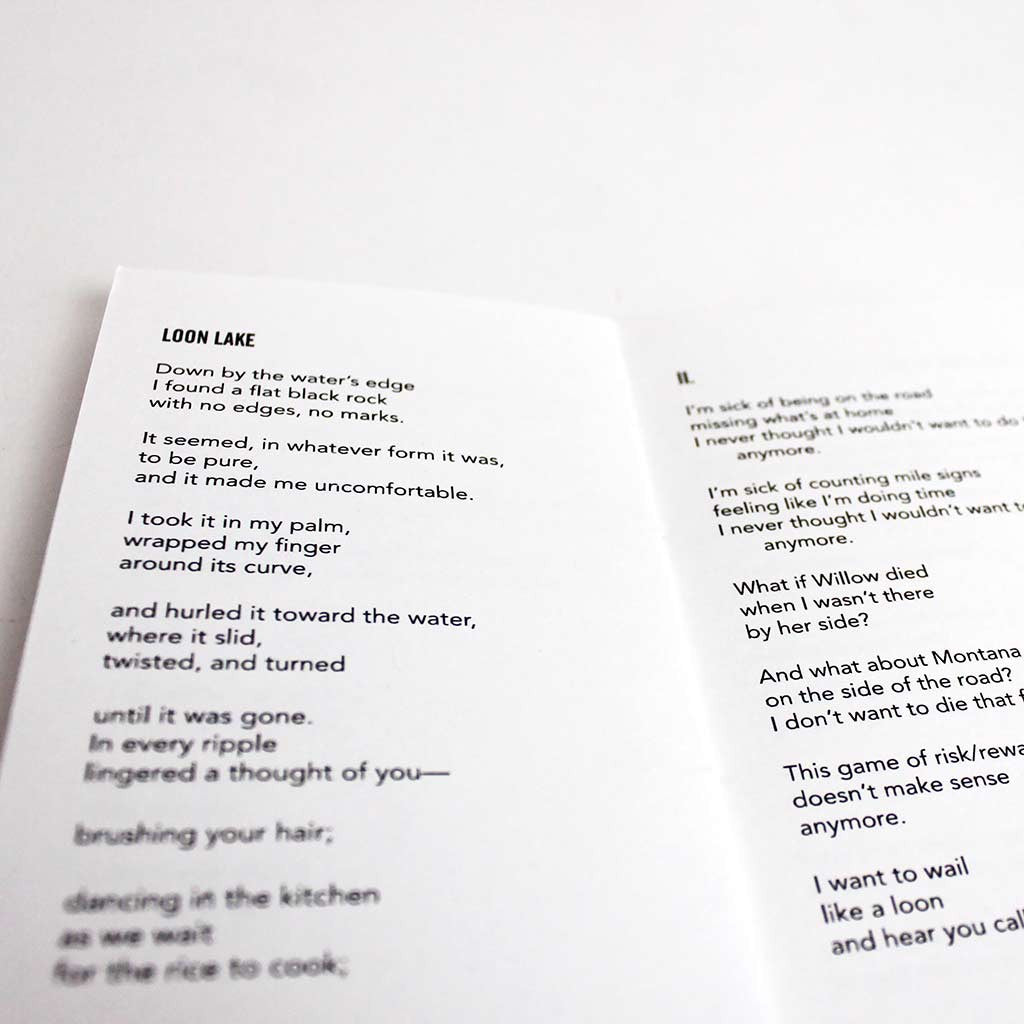 LOON LAKE
Down by the water's edge
I found a flat black rock
with no edges, no marks.
It seemed, in whatever form it was,
to be pure,
and it made me uncomfortable.
I took it in my palm,
wrapped my finger
around its curve,
and hurled it toward the water,
where it slid,
twisted, and turned
until it was gone.
In every ripple
lingered a thought of you—
brushing your hair;
dancing in the kitchen
as we wait
for the rice to cook;
II.
I'm sick of being on the road
missing what's at home
I never thought I wouldn't want to do
anymore.
I'm sick of counting mile signs
feeling like I'm doing time
I never thought I wouldn't want
anymore.
What if Willow died
when I wasn't there
by her side?
And what about Montana
on the side of the road?
I don't want to die that
This game of
doesn't make sense
anymore.
I want to wail
like a loon
and hear you